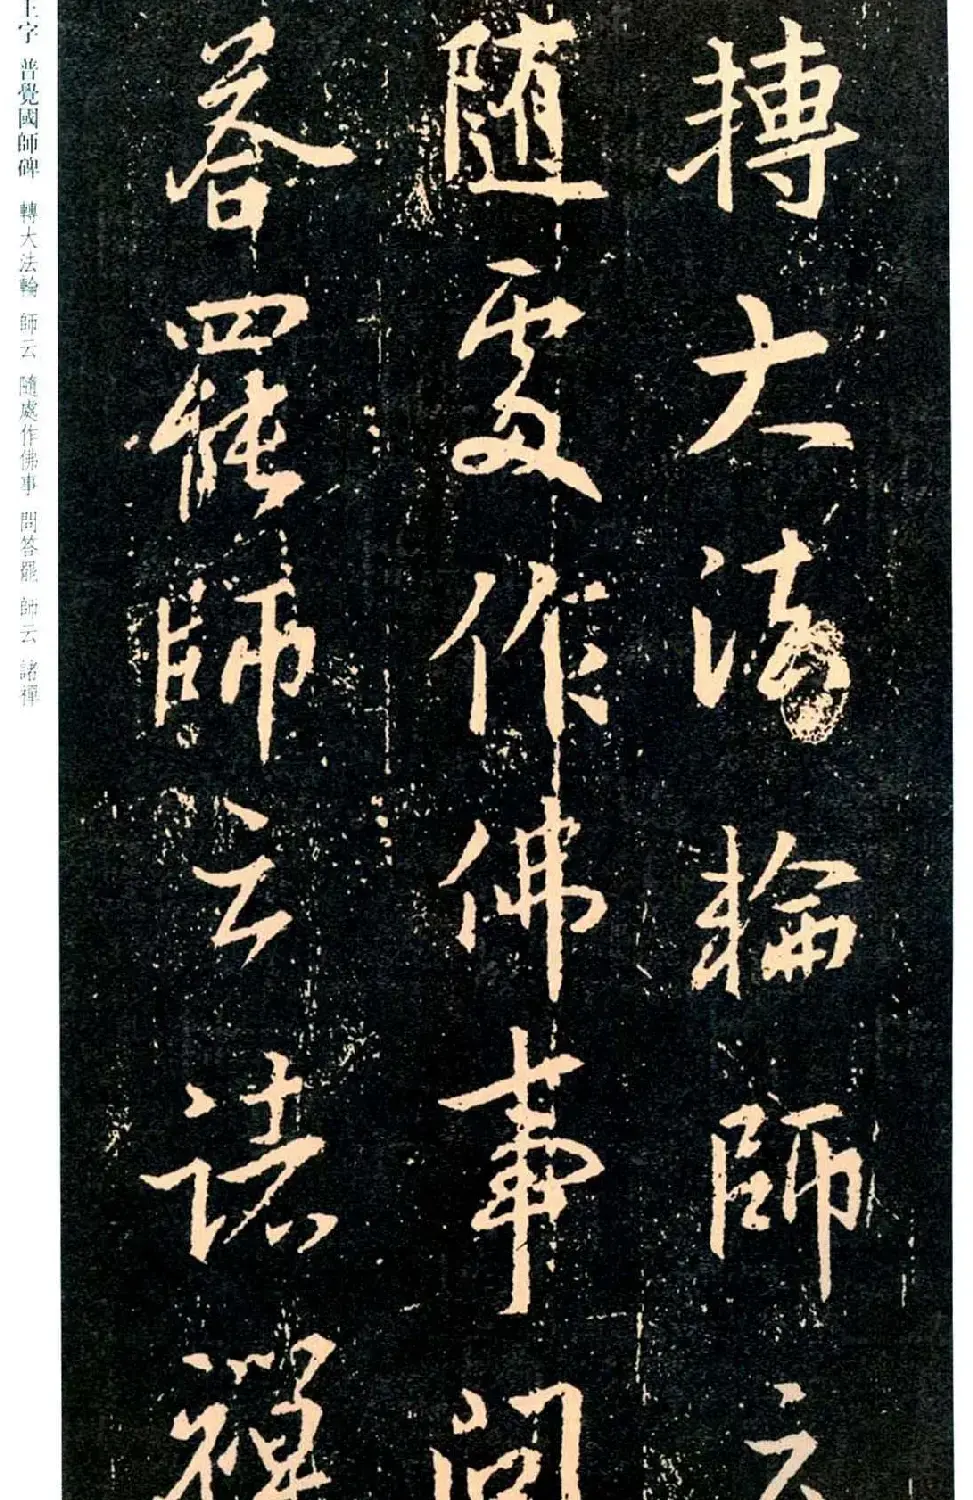 轉大法輪師云
隨處作佛事問
答罷師云諸禪
王字 普覺國師碑 轉大法輪 師云 隨處作佛事 問答罷 師云 諸禪